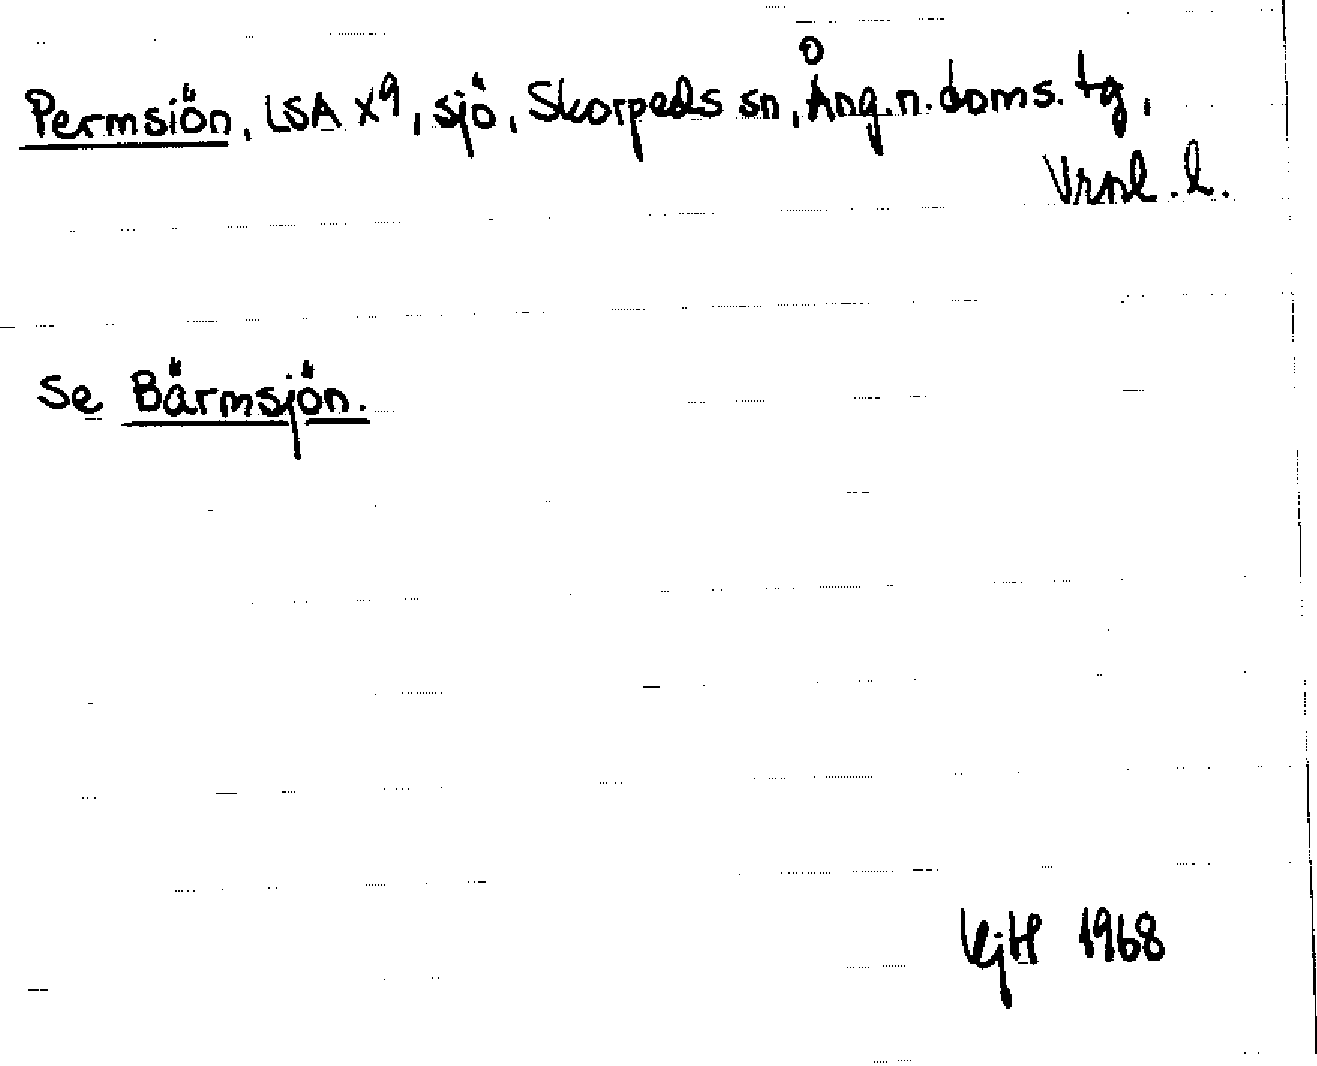 Permsiön, LSA X9, sjö, Skorpeds sn, Ång.n.doms.tg,
Vrnl.l.
Se Bärmsjön.
1968